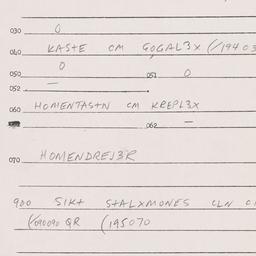 030 0
040 KASTE OM GOGAL3X (/19403
0
050 051 0
052 —
060 HOMENTASTN OM KREPL3X
062 —
070 HOMENDREJ3R
900 SIKT STALXMONES CLN
(/090090 QR (/195070